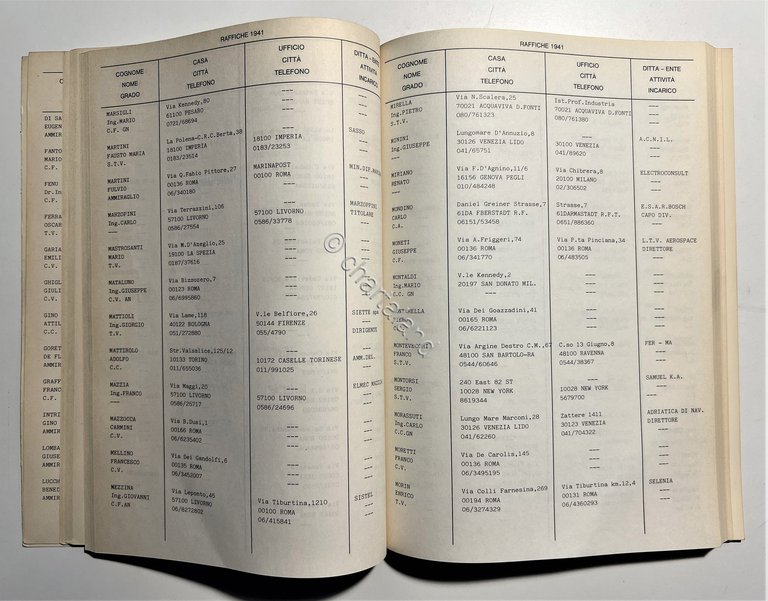 RAFFICHE 1941
COGNOME
NOME
GRADO
CASA
CITTÀ
TELEFONO
UFFICIO
CITTÀ
TELEFONO
DITTA - ENTE
ATTIVITÀ
INCARICO
MARSIGLI Via Kennedy,80 ---
Ing.MARIO 61100 PESARO ---
C.F. GN 0721/68694 ---
MARTINI La Polena-C.R.C.Berta,38 --- SASSO
FAUSTO MARIA 18100 IMPERIA 18100 IMPERIA
S.T.V. 0183/23514 0183/23253
MARTINI Via Q.Fabio Pittore,27 MARINAPOST
FULVIO 00136 ROMA 00100 ROMA
AMMIRAGLIO 06/340180 ---
MARZOPINI Via Terrazzini,106 ---
Ing.CARLO 57100 LIVORNO 57100 LIVORNO TITOLARE
--- 0586/27554 0586/33778
MASTROSANTI Via M.D'Azeglio,25 ---
MARIO 19100 LA SPEZIA ---
T.V. 0187/37616 ---
MATALUNO Via Bizzozero,7 ---
Ing.GIUSEPPE 00123 ROMA ---
C.V. AN 06/6995860 ---
MATTIOLI Via Lame,118 V.le Belfiore,26 SIETTE spa
Ing.GIORGIO 40122 BOLOGNA 50144 FIRENZE
T.V. 051/272880 055/4790 DIRIGENTE
MATTIROLO Str.Valsalice,125/12 ---
ADOLFO 10133 TORINO 10172 CASELLE TORINESE AMM.DEL.
C.C. 011/655036 011/991025
MAZZIA Via Maggi,20 ---
Ing.FRANCO 57100 LIVORNO 57100 LIVORNO
--- 0586/25717 0586/24696
MAZZOCCA Via B.Dusi,1 ---
CARMINI 00166 ROMA ---
C.V. 06/6235402 ---
MELLINO Via Dei Gandolfi,6 ---
FRANCESCO 00135 ROMA ---
C.V. 06/3452007 ---
MEZZINA Via Leponto,45 Via Tiburtina,1210 SISTEL
Ing.GIOVANNI 57100 LIVORNO 00100 ROMA
C.F.AN 06/8272802 06/415841
RAFFICHE 1941
COGNOME
NOME
GRADO
CASA
CITTÀ
TELEFONO
UFFICIO
CITTÀ
TELEFONO
DITTA - ENTE
ATTIVITÀ
INCARICO
MIRELLA Via N.Scalera,25 Ist.Prof.Industria
Ing.PIETRO 70021 ACQUAVIVA D.FONTI 70021 ACQUAVIVA D.FONTI
S.T.V. 080/761323 080/761380
MONINI Lungomare D'Annuzio,8 --- A.C.N.I.L.
Ing.GIUSEPPE 30126 VENEZIA LIDO 30100 VENEZIA
--- 041/65751 041/89620
MIRIANO Via F.D'Agnino,11/6 Via Chitrera,8 ELECTROCONSULT
RENATO 16156 GENOVA PEGLI 20150 MILANO
--- 010/484248 02/306502
MONDINO Daniel Greiner Strasse,7 Strasse,7 E.S.A.R.BOSCH
CARLO 61DA EBERSTADT R.F. 61DARMASTADT R.F.T. CAPO DIV.
C.A. 06151/53458 0651/886360
MONETI Via A.Friggeri,74 Via P.ta Pinciana,34 L.T.V. AEROSPACE
GIUSEPPE 00136 ROMA 00136 ROMA DIRETTORE
C.F. 06/341770 06/483505
MONTALDI V.le Kennedy,2 ---
Ing.MARIO 20197 SAN DONATO MIL. ---
C.C. GN --- ---
Via Dei Goazzadini,41 ---
00165 ROMA ---
06/6221123 ---
MONTEVECCHI Via Argine Destro C.M.,67 C.so 13 Giugno,8 FER - MA
FRANCO 48100 SAN BARTOLO-RA 48100 RAVENNA
S.T.V. 0544/60646 0544/38367
MONTORSI 240 East 82 ST --- SAMUEL K.A.
SERGIO 10028 NEW YORK 10028 NEW YORK
S.T.V. 8619344 5679700
MORASSUTI Lungo Mare Marconi,28 Zattere 1411 ADRIATICA DI NAV.
Ing.CARLO 30126 VENEZIA LIDO 30123 VENEZIA DIRETTORE
C.C.GN 041/62260 041/704322
MORETTI Via De Carolis,145 ---
FRANCO 00136 ROMA ---
C.V. 06/3495195 ---
MORIN Via Colli Farnesina,269 Via Tiburtina km.12,4 SELENIA
ENRICO 00194 ROMA 00131 ROMA
T.V. 06/3274329 06/4360293